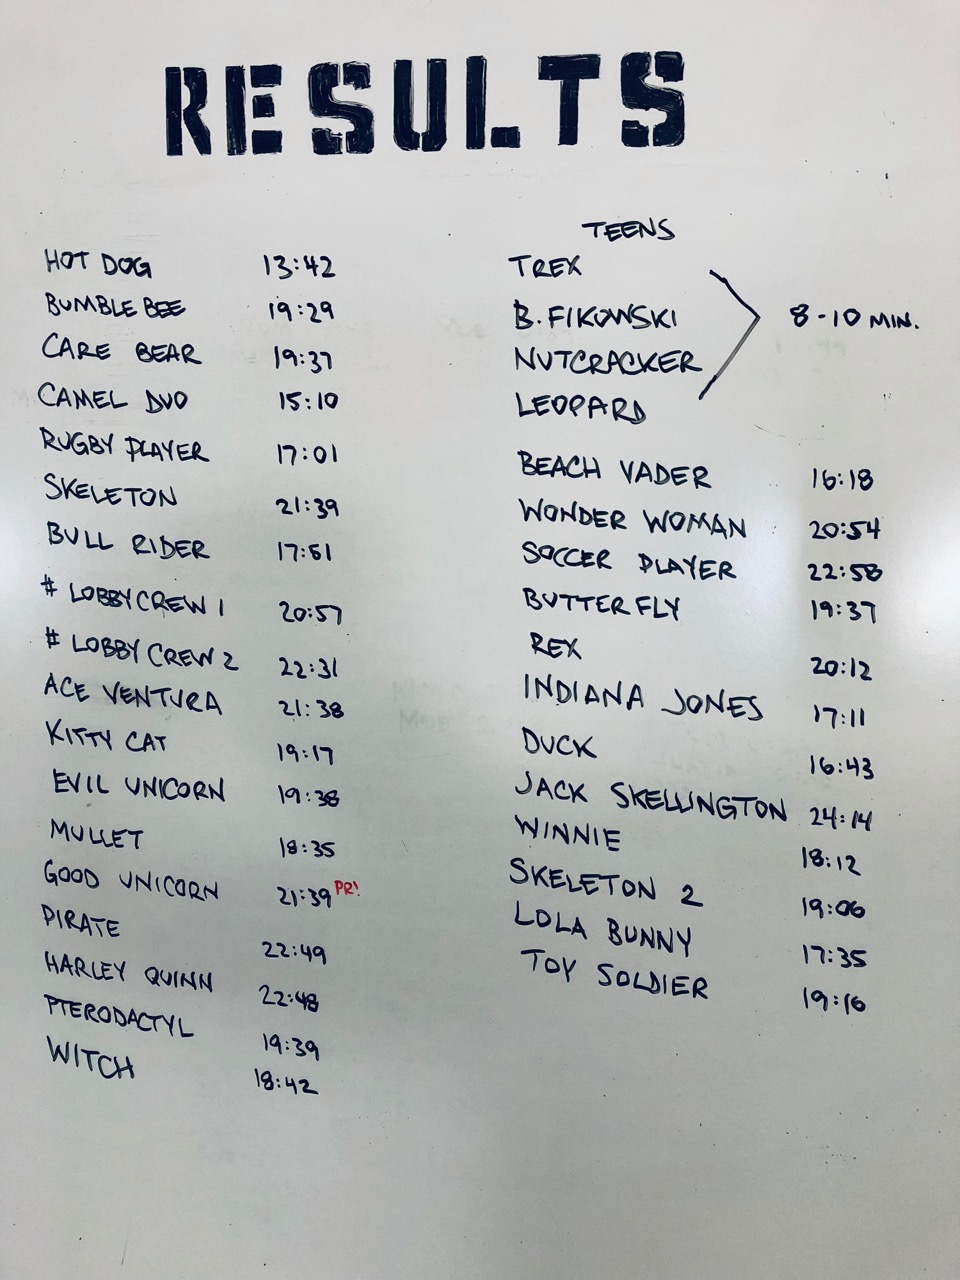 RESULTS
HOT DOG 13:42
BUMBLE BEE 19:29
CARE BEAR 19:37
CAMEL DUO 15:10
RUGBY PLAYER 17:01
SKELETON 21:39
BULL RIDER 17:51
# LOBBYCREW 1 20:57
# LOBBY CREW 2 22:31
ACE VENTURA 21:38
KITTY CAT 19:17
EVIL UNICORN 19:38
MULLET 18:35
GOOD UNICORN 21:39 PR!
PIRATE 22:49
HARLEY QUINN 22:48
PTERODACTYL 19:39
WITCH 18:42
TEENS
TREX
B. FIKOWSKI 8-10 MIN.
NUTCRACKER
LEOPARD
BEACH VADER 16:18
WONDER WOMAN 20:54
SOCCER PLAYER 22:58
BUTTERFLY 19:37
REX 20:12
INDIANA JONES 17:11
DUCK 16:43
JACK SKELLINGTON 24:14
WINNIE 18:12
SKELETON 2 19:06
LOLA BUNNY 17:35
TOY SOLDIER 19:16